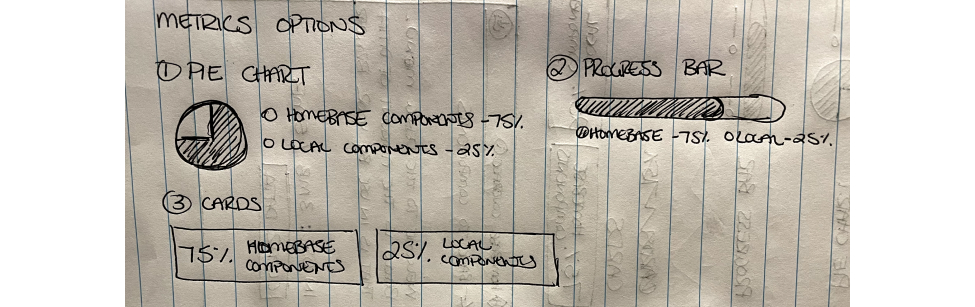 METRICS OPTIONS
① PIE CHART
O HOMEBASE COMPONENTS - 75%.
O LOCAL COMPONENTS - 25%
② PROGRESS BAR
HOMEBASE - 75% O LOCAL - 25%.
③ CARDS
75%. HOMEBASE
COMPONENTS
25%. LOCAL
COMPONENTS